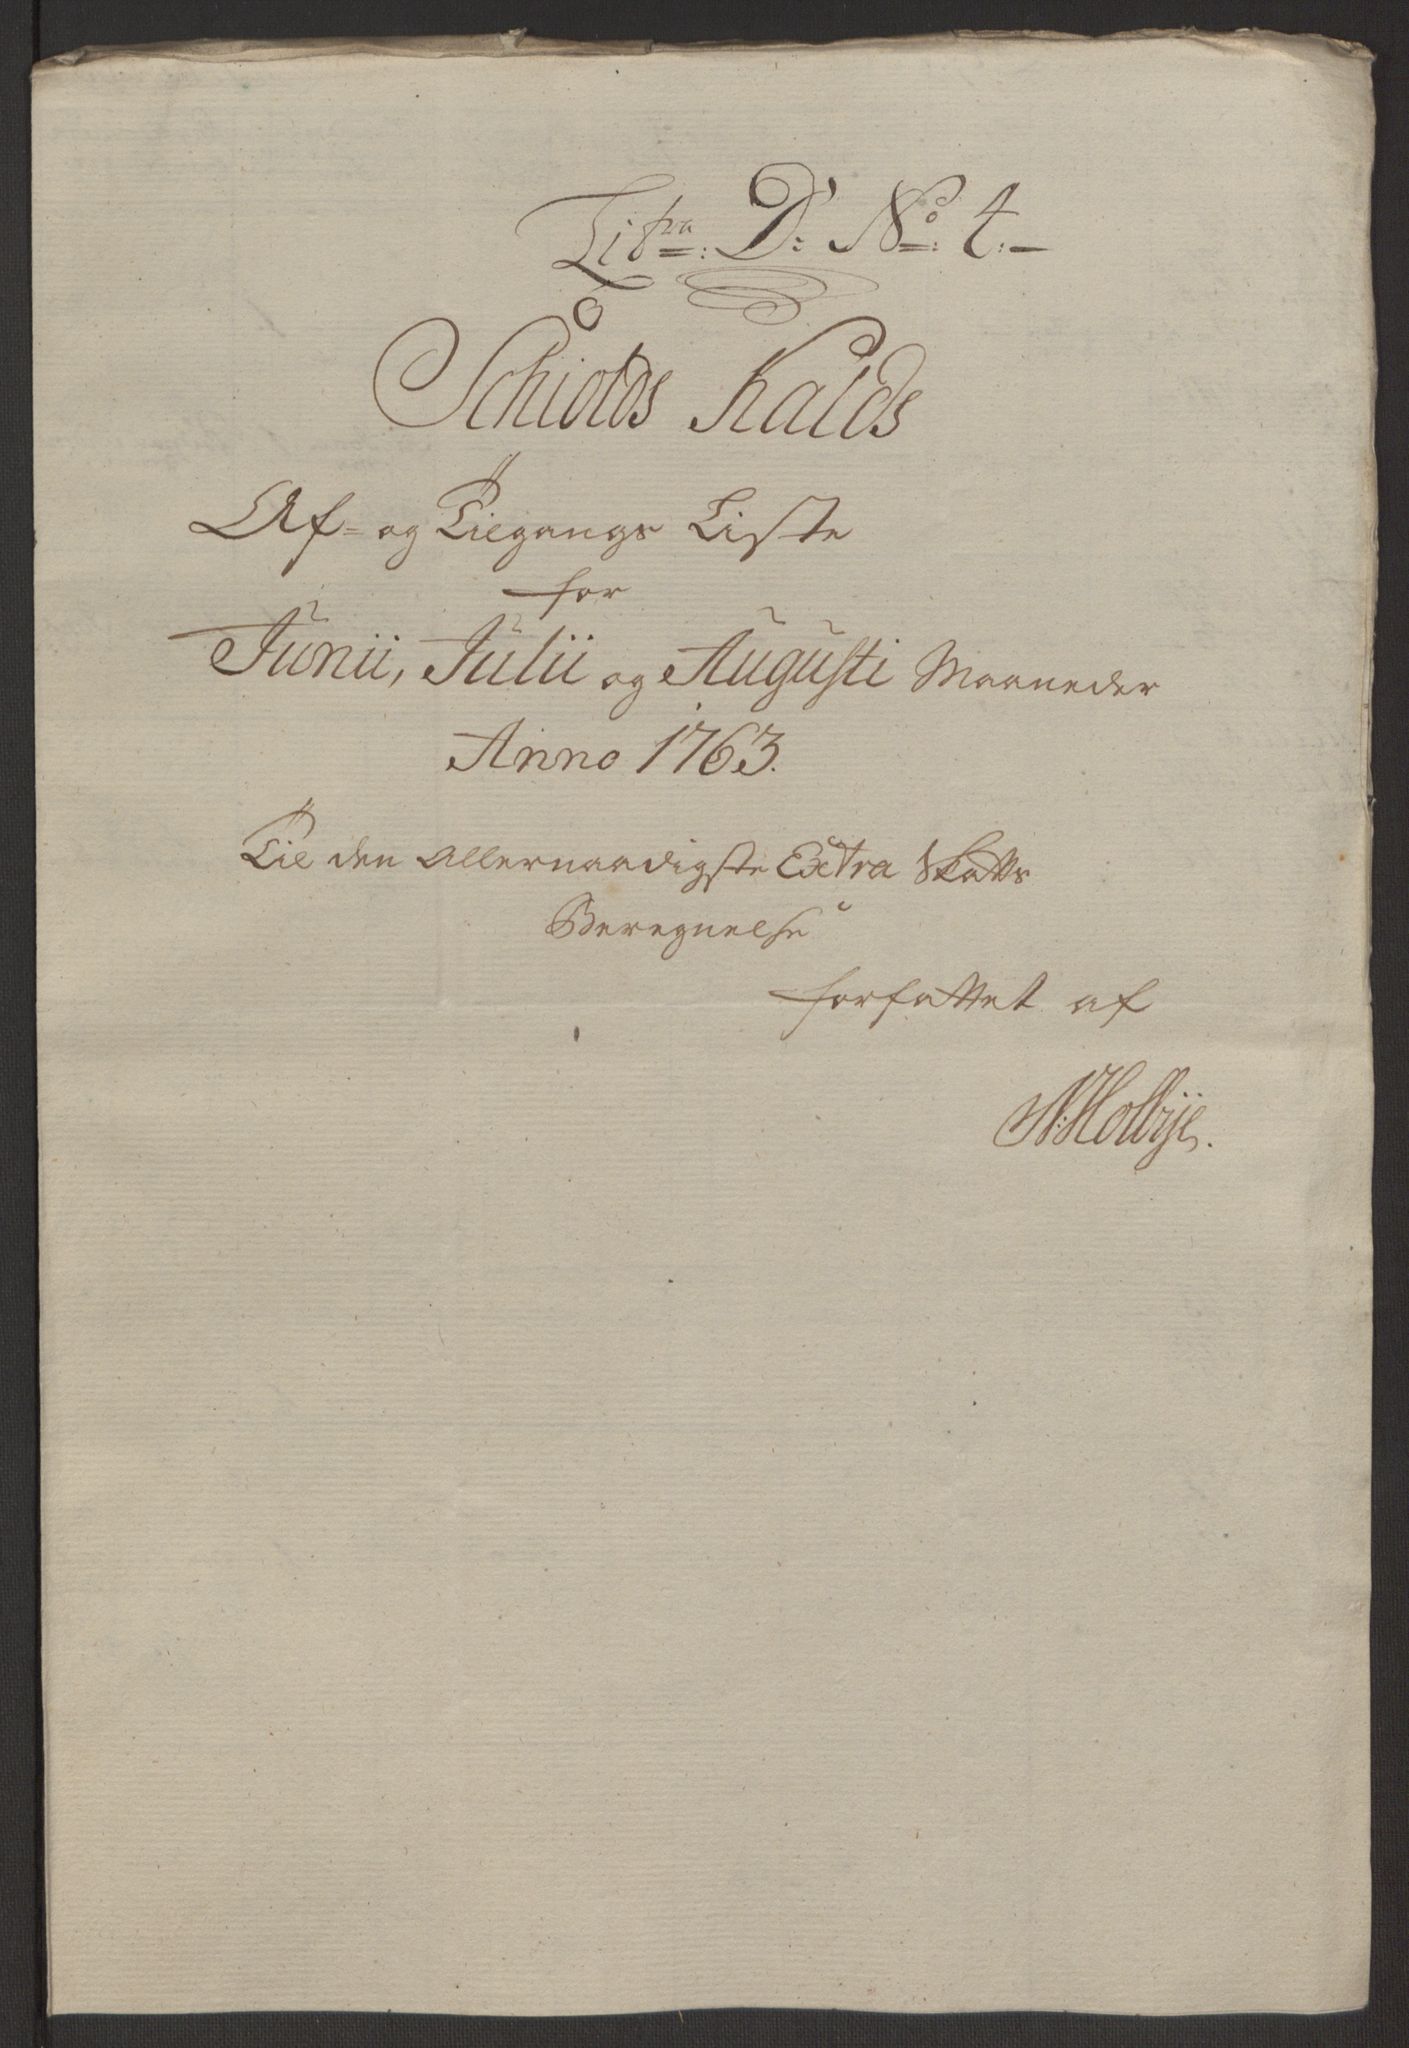 Litra: D: No: 4.
Schiolds Kalds
Af- og Tilgangs Liste
for
Junii, Julii og Augusti Maaneder
Anno 1763.
Til den Allernaadigste Extra Skatts
Beregnelse
forfattet af
N: Holbye.